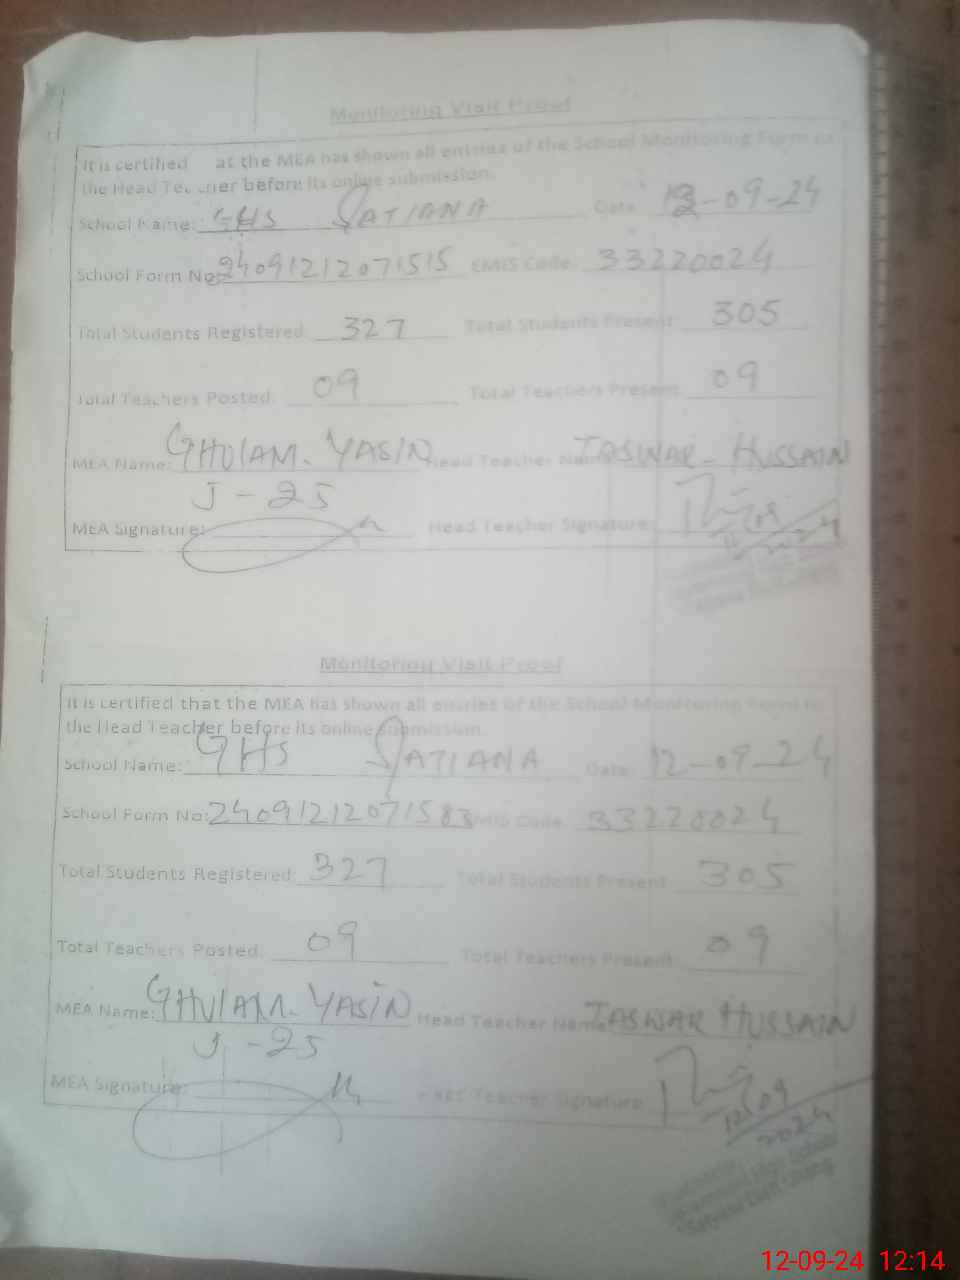 Monitoring Visit Proof
It is certified at the MEA has shown all entries of the School Monitoring Form to
the Head Teacher before its online submission.
School Name: GHS SATIANA Date: 12-09-24
School Form No: 24091212071515 EMIS Code: 33220024
Total Students Registered: 327 Total Students Present: 305
Total Teachers Posted: 09 Total Teachers Present: 09
MEA Name: GHULAM. YASIN Head Teacher Name: TASWAR HUSSAIN
J-25
MEA Signature: Head Teacher Signature:
Monitoring Visit Proof
It is certified that the MEA has shown all entries of the School Monitoring Form to
the Head Teacher before its online submission.
School Name: GHS SATIANA Date: 12-09-24
School Form No: 24091212071583 EMIS Code: 33220024
Total Students Registered: 327 Total Students Present: 305
Total Teachers Posted: 09 Total Teachers Present: 09
MEA Name: GHULAM. YASIN Head Teacher Name: TASWAR HUSSAIN
J-25
MEA Signature: Head Teacher Signature:
12/09
2024
High School
12-09-24 12:14